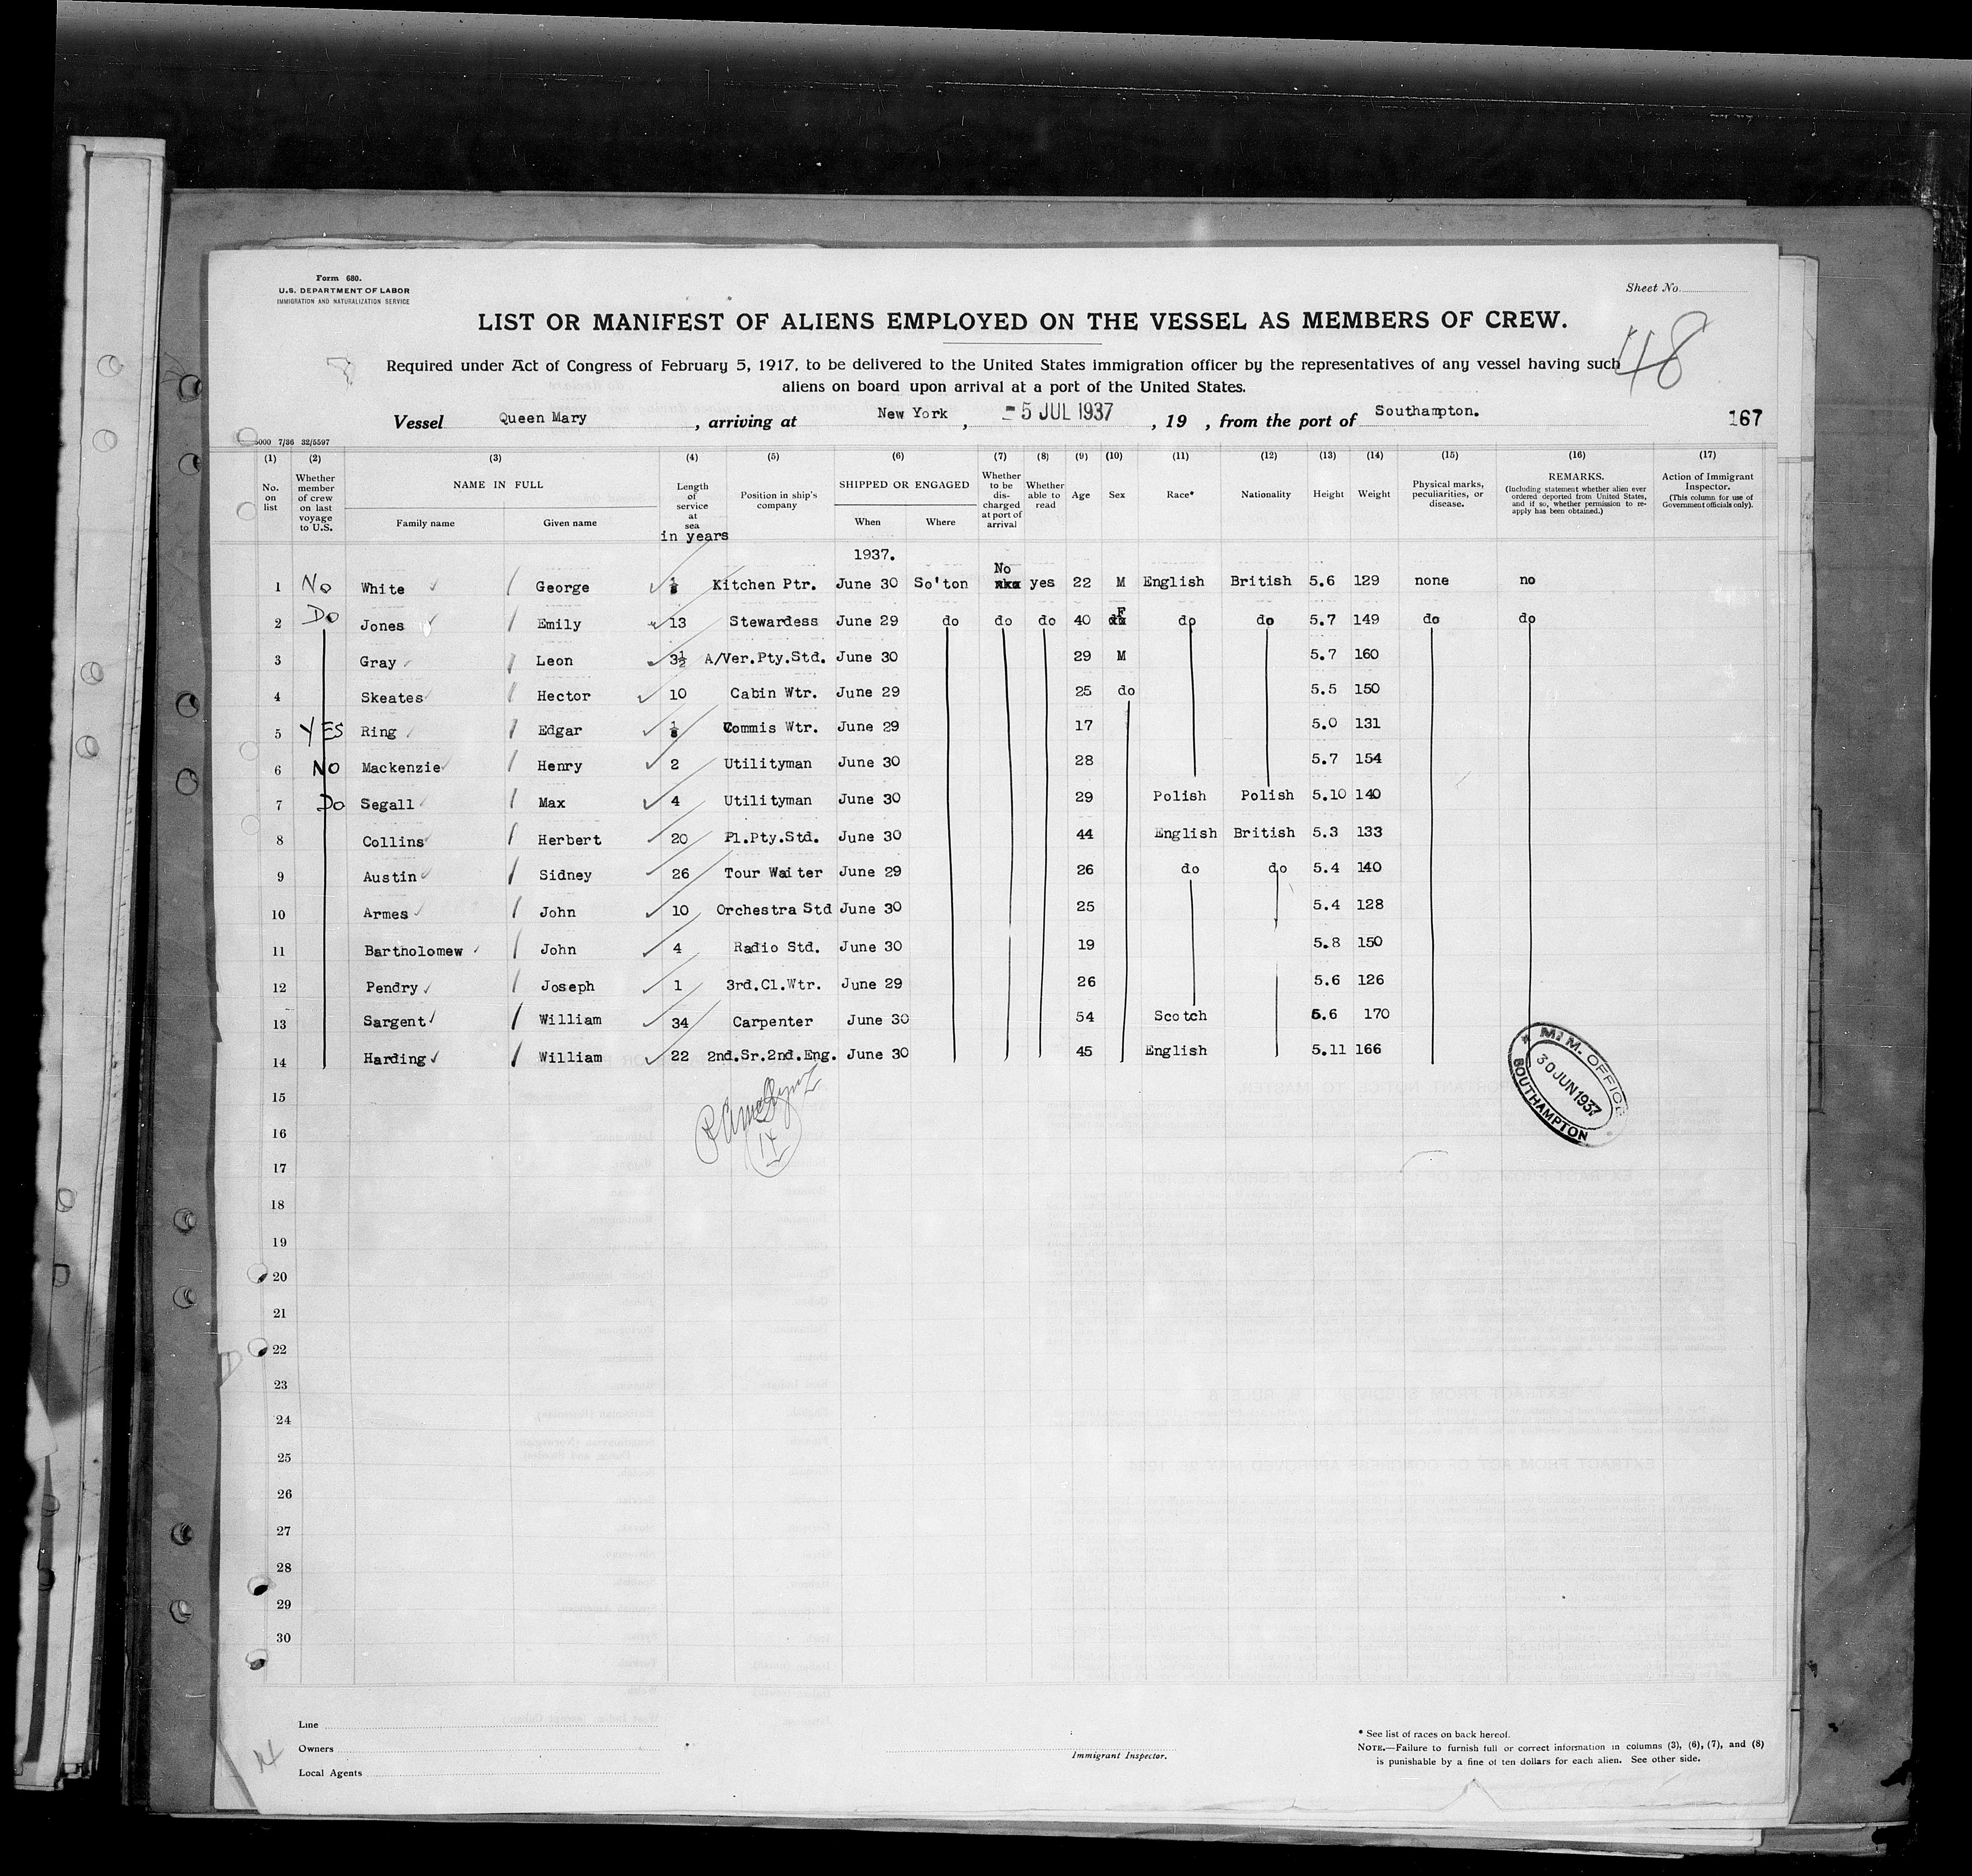 Form 680.
U.S. DEPARTMENT OF LABOR
IMMIGRATION AND NATURALIZATION SERVICE
Sheet No.
LIST OR MANIFEST OF ALIENS EMPLOYED ON THE VESSEL AS MEMBERS OF CREW.
48
Required under Act of Congress of February 5, 1917, to be delivered to the United States immigration officer by the representatives of any vessel having such
aliens on board upon arrival at a port of the United States.
Vessel Queen Mary, arriving at New York, -5 JUL 1937, 19 , from the port of Southampton.
167
5000 7/36 32/5597
(1) (2) (3) (4) (5) (6) (7) (8) (9) (10) (11) (12) (13) (14) (15) (16) (17)
No. on list
Whether member of crew on last voyage to U.S.
NAME IN FULL
Family name
Given name
Length of service at sea
in years
Position in ship's company
SHIPPED OR ENGAGED
When
Where
Whether to be discharged at port of arrival
Whether able to read
Age
Sex
Race*
Nationality
Height
Weight
Physical marks, peculiarities, or disease.
REMARKS.
(Including statement whether alien ever ordered deported from United States, and if so, whether permission to re-apply has been obtained.)
Action of Immigrant Inspector.
(This column for use of Government officials only).
1937.
1 No White George Kitchen Ptr. June 30 So'ton No yes 22 M English British 5.6 129 none no
2 Do Jones Emily 13 Stewardess June 29 do do do 40 F do do 5.7 149 do do
3 Gray Leon 3½ A/Ver.Pty.Std. June 30 29 M 5.7 160
4 Skeates Hector 10 Cabin Wtr. June 29 25 do 5.5 150
5 YES Ring Edgar Commis Wtr. June 29 17 5.0 131
6 NO Mackenzie Henry 2 Utilityman June 30 28 5.7 154
7 Do Segall Max 4 Utilityman June 30 29 Polish Polish 5.10 140
8 Collins Herbert 20 Pl.Pty.Std. June 30 44 English British 5.3 133
9 Austin Sidney 26 Tour Waiter June 29 26 do do 5.4 140
10 Armes John 10 Orchestra Std June 30 25 5.4 128
11 Bartholomew John 4 Radio Std. June 30 19 5.8 150
12 Pendry Joseph 1 3rd.Cl.Wtr. June 29 26 5.6 126
13 Sargent William 34 Carpenter June 30 54 Scotch 5.6 170
14 Harding William 22 2nd.Sr.2nd.Eng. June 30 45 English 5.11 166
M.M. OFFICE
30 JUN 1937
SOUTHAMPTON
15
16
17
18
19
20
21
22
23
24
25
26
27
28
29
30
Line
Owners
Local Agents
Immigrant Inspector.
* See list of races on back hereof.
NOTE.—Failure to furnish full or correct information in columns (3), (6), (7), and (8)
is punishable by a fine of ten dollars for each alien. See other side.